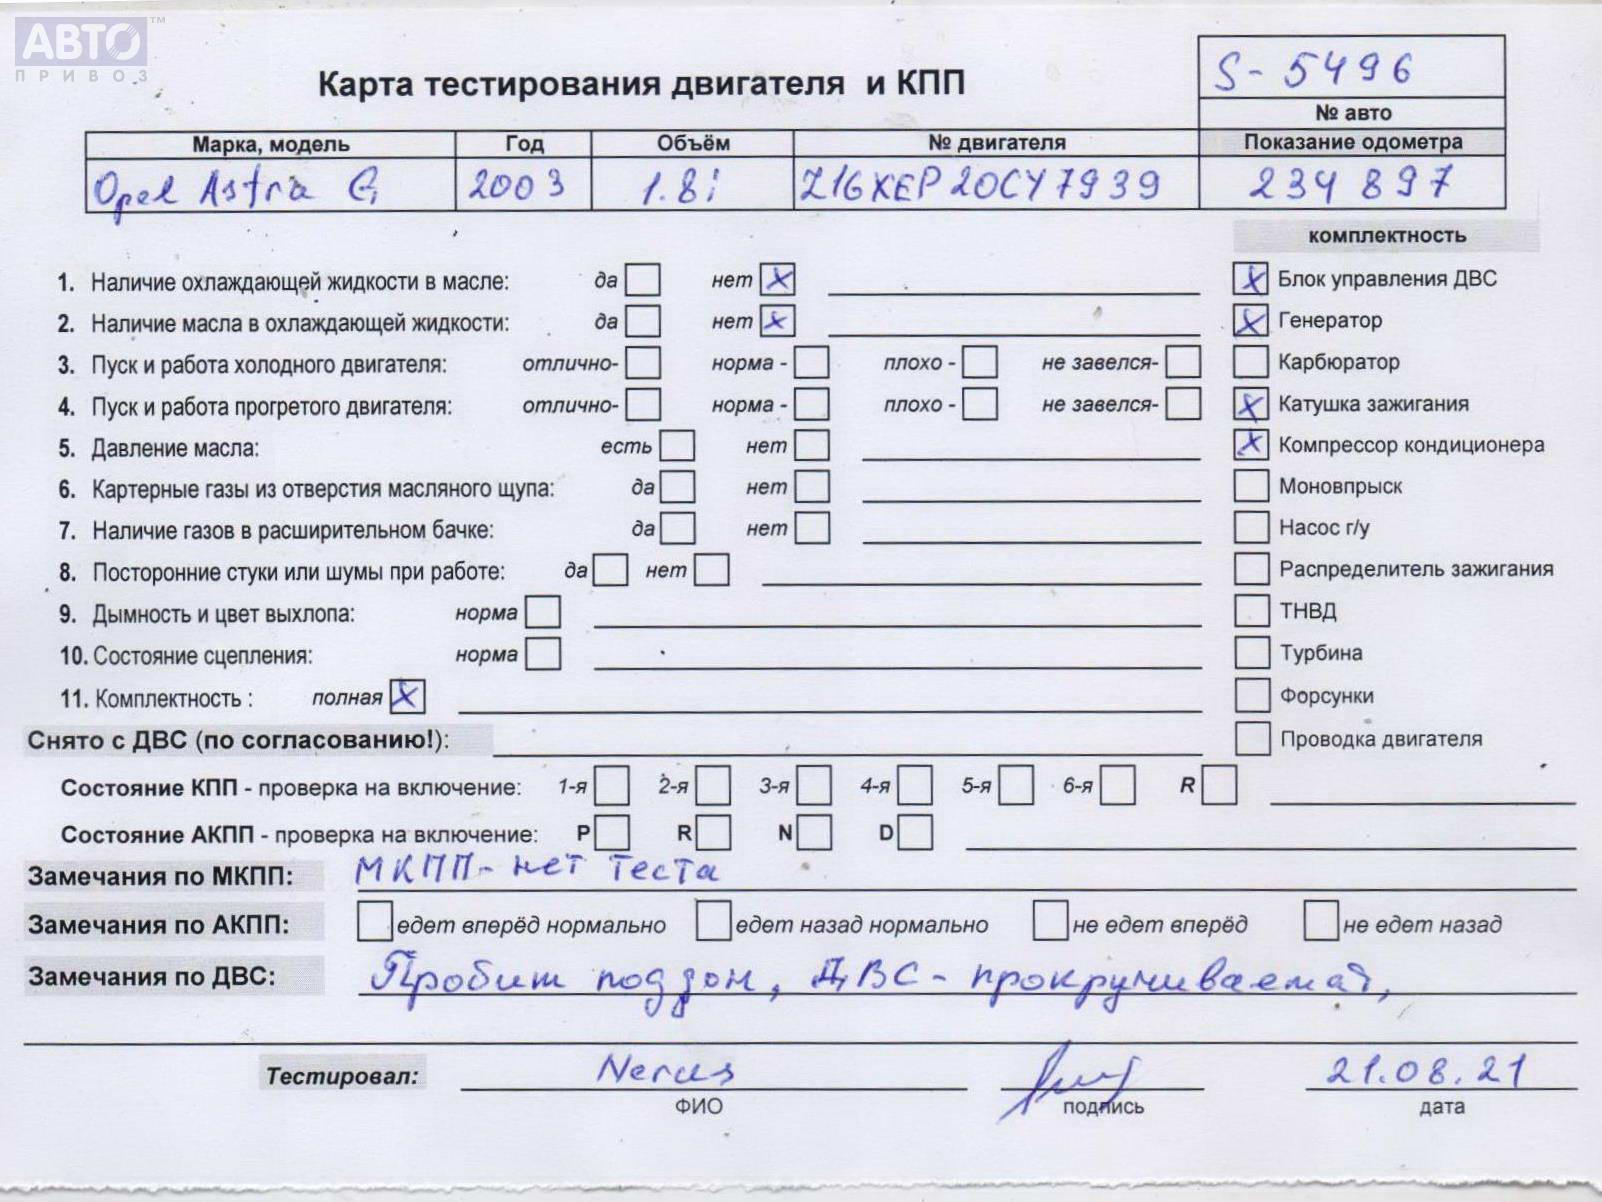 АВТО™
ПРИВОЗ
S-5496
Карта тестирования двигателя и КПП
№ авто
Марка, модель Год Объём № двигателя Показание одометра
Opel Astra G 2003 1.8i Z16XEP20CY7939 234 897
комплектность
1. Наличие охлаждающей жидкости в масле: да нет x Блок управления ДВС x
2. Наличие масла в охлаждающей жидкости: да нет x Генератор x
3. Пуск и работа холодного двигателя: отлично- норма - плохо - не завелся- Карбюратор
4. Пуск и работа прогретого двигателя: отлично- норма - плохо - не завелся- Катушка зажигания x
5. Давление масла: есть нет Компрессор кондиционера x
6. Картерные газы из отверстия масляного щупа: да нет Моновпрыск
7. Наличие газов в расширительном бачке: да нет Насос г/у
8. Посторонние стуки или шумы при работе: да нет Распределитель зажигания
9. Дымность и цвет выхлопа: норма ТНВД
10. Состояние сцепления: норма Турбина
11. Комплектность : полная x Форсунки
Снято с ДВС (по согласованию!): Проводка двигателя
Состояние КПП - проверка на включение: 1-я 2-я 3-я 4-я 5-я 6-я R
Состояние АКПП - проверка на включение: P R N D
Замечания по МКПП: МКПП- нет теста
Замечания по АКПП: едет вперёд нормально едет назад нормально не едет вперёд не едет назад
Замечания по ДВС: Пробит поддон, ДВС - прокручивается,
Тестировал: 21.08.21
ФИО подпись дата